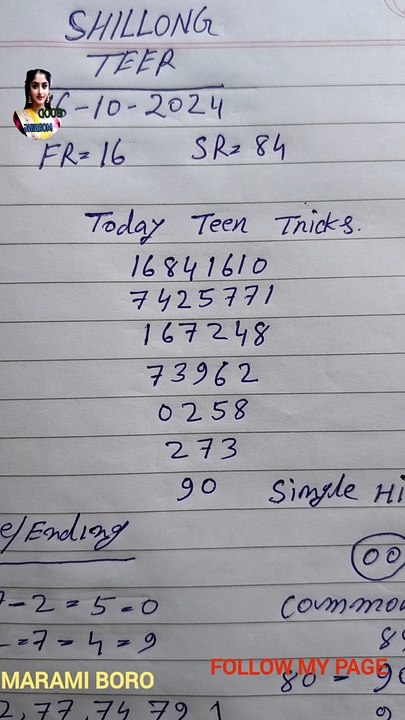 SHILLONG
TEER
-10-2024
FR=16 SR=84
Today Teer Tricks.
16841610
7425771
167248
73962
0258
273
90 Single Hi
e/Ending
00
7-2=5=0 Common
=7=4=9
MARAMI BORO FOLLOW MY PAGE
80-90
2,77,74,79,1